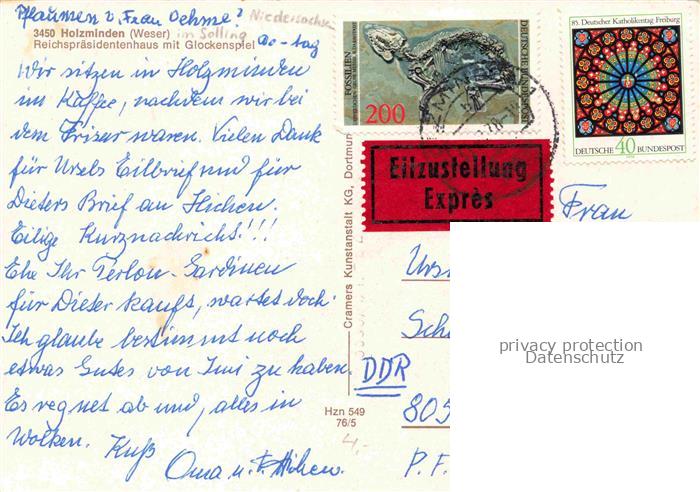 Pflaumen v. Frau Oehme?
Niedersachsen
im Solling
3450 Holzminden (Weser)
Reichspräsidentenhaus mit Glockenspiel
Do-tag
Wir sitzen in Holzminden
im Kaffee, nachdem wir bei
dem Friseur waren. Vielen Dank
für Ursels Eilbrief und für
Dieters Brief an
Eilige Kurznachricht!!!
Ehe Ihr Gardinen
für Dieter kauft, wartet doch.
Ich glaube bestimmt noch
etwas Gutes von Imi zu haben.
Es regnet ab und, alles in
Wolken. Kuß
Oma u.
FOSSILIEN
200
DEUTSCHE BUNDESPOST
85. Deutscher Katholikentag Freiburg
DEUTSCHE 40 BUNDESPOST
Eilzustellung
Exprès
Cramers Kunstanstalt KG, Dortmun
Hzn 549
76/5
4,-
Frau
Urs
Sch
DDR
805
P. F.
privacy protection
Datenschutz